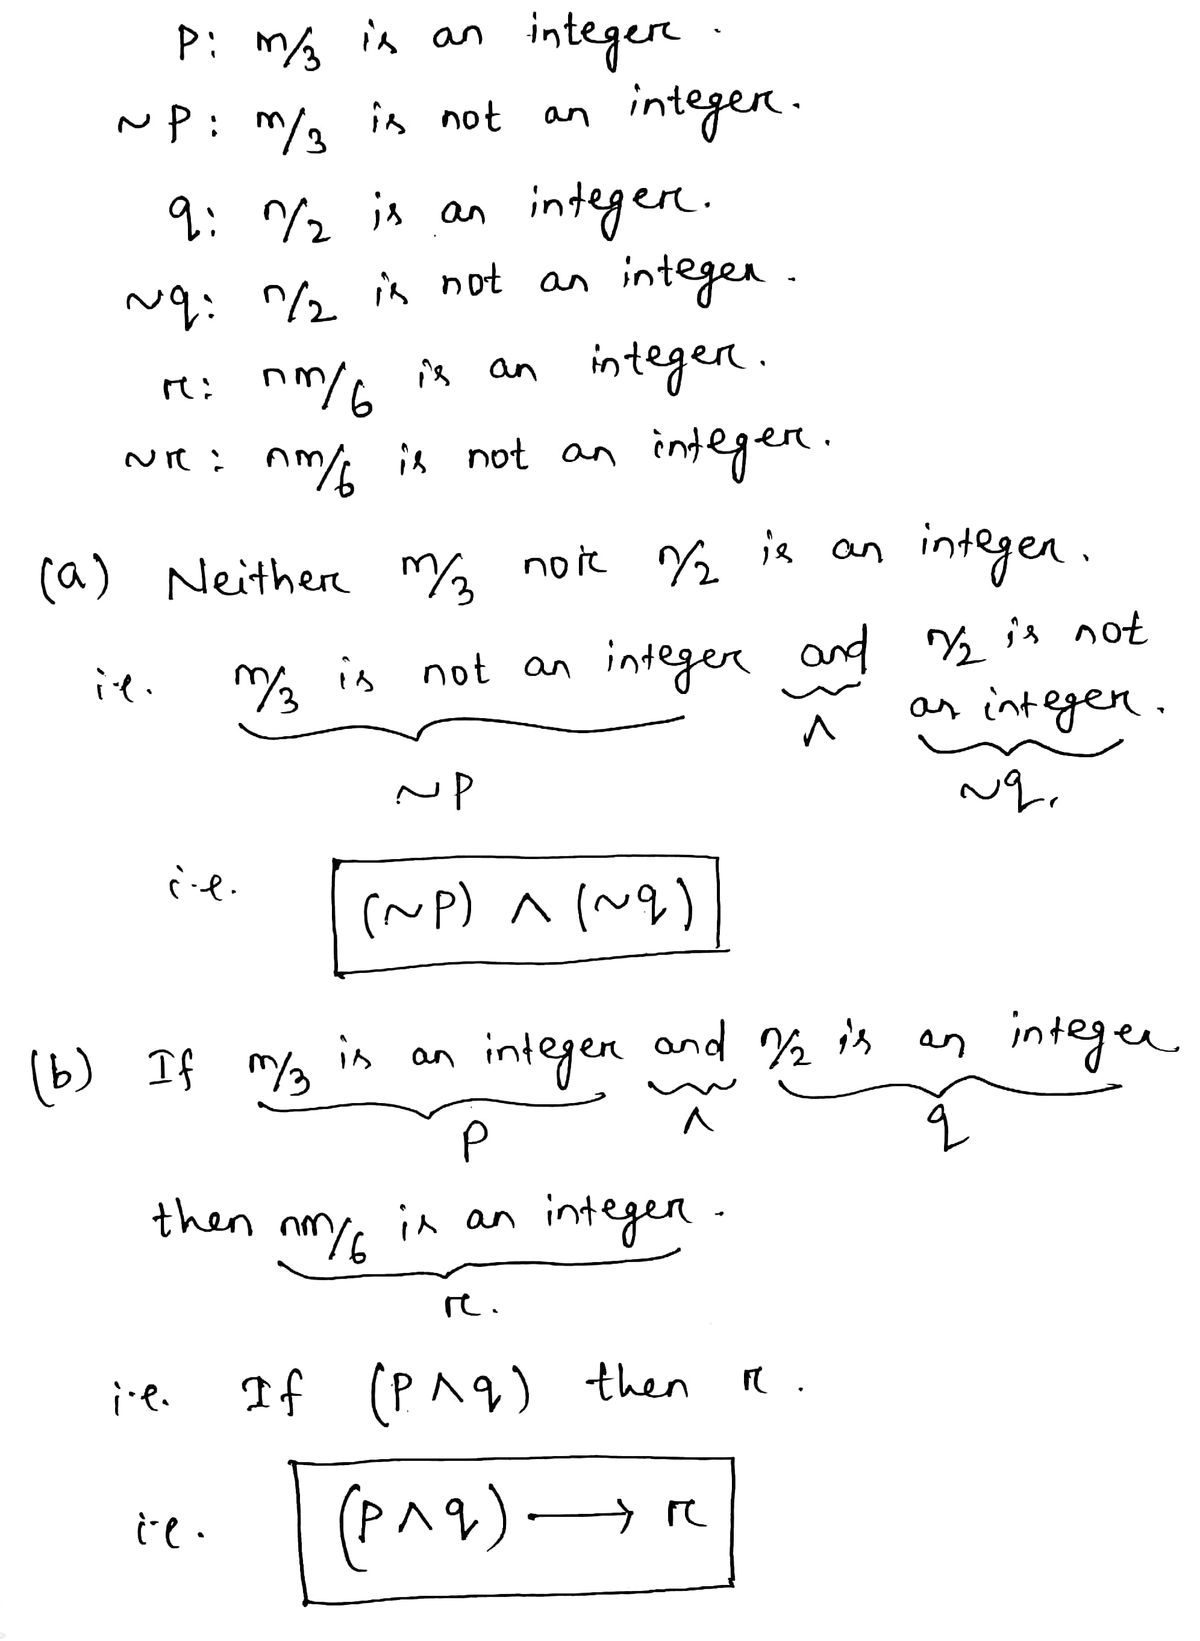 P: m/3 is an integer.
~P: m/3 is not an integer.
q: n/2 is an integer.
~q: n/2 is not an integer.
r: nm/6 is an integer.
~r: nm/6 is not an integer.
(a) Neither m/3 nor n/2 is an integer.
i.e. m/3 is not an integer and n/2 is not
an integer.
∧
~P ~q.
i.e. (~P) ∧ (~q)
(b) If m/3 is an integer and n/2 is an integer
P ∧ q
then nm/6 is an integer.
r.
i.e. If (P ∧ q) then r.
i.e. (P ∧ q) ⟶ r